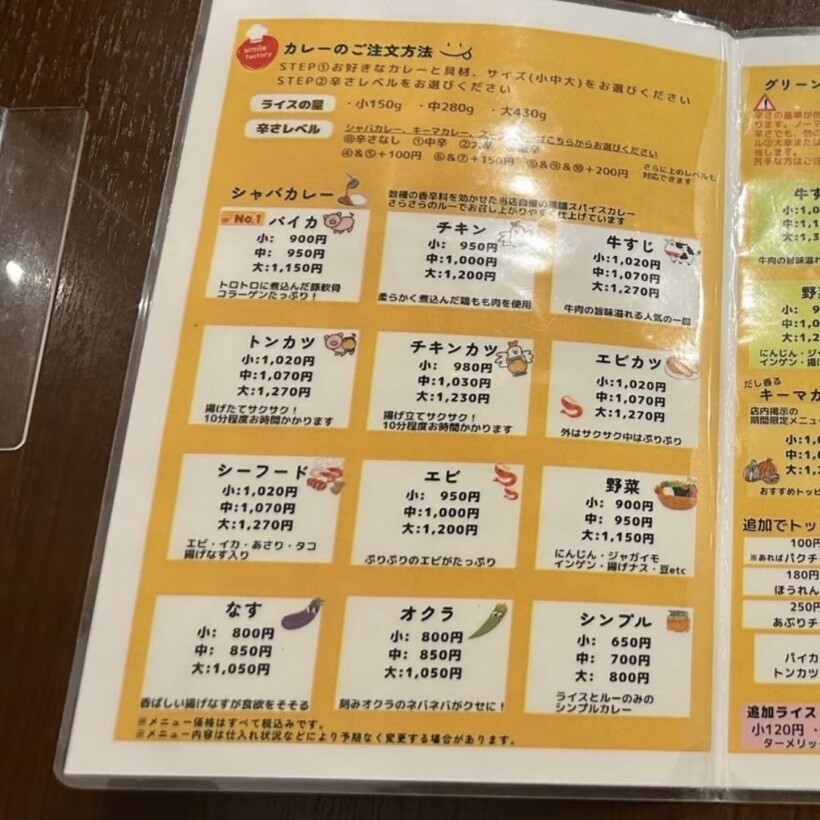 smile
factory
カレーのご注文方法
STEP①お好きなカレーと具材、サイズ(小中大)をお選びください
STEP②辛さレベルをお選びください
ライスの量 ・小150g ・中280g ・大430g
辛さレベル シャバカレー、キーマカレー、ス こちらからお選びください
⓪辛さなし ①中辛
④&⑤+100円 ⑥&⑦+150円 ⑧&⑨&⑩+200円
さらに上のレベルも
対応できます
シャバカレー
数種の香辛料を効かせた当店自慢の スパイスカレー
さらさらのルーでお召し上がりやすく仕上げています
No.1 パイカ
小: 900円
中: 950円
大:1,150円
トロトロに煮込んだ豚軟骨
コラーゲンたっぷり！
チキン
小: 950円
中:1,000円
大:1,200円
柔らかく煮込んだ鶏もも肉を使用
牛すじ
小:1,020円
中:1,070円
大:1,270円
牛肉の旨味溢れる人気の一皿
トンカツ
小:1,020円
中:1,070円
大:1,270円
揚げたてサクサク！
10分程度お時間かかります
チキンカツ
小: 980円
中:1,030円
大:1,230円
揚げ立てサクサク！
10分程度お時間かかります
エビカツ
小:1,020円
中:1,070円
大:1,270円
外はサクサク中はぷりぷり
シーフード
小:1,020円
中:1,070円
大:1,270円
エビ・イカ・あさり・タコ
揚げなす入り
エビ
小: 950円
中:1,000円
大:1,200円
ぷりぷりのエビがたっぷり
野菜
小: 900円
中: 950円
大:1,150円
にんじん・ジャガイモ
インゲン・揚げナス・豆etc
なす
小: 800円
中: 850円
大:1,050円
香ばしい揚げなすが食欲をそそる
オクラ
小: 800円
中: 850円
大:1,050円
刻みオクラのネバネバがクセに！
シンプル
小: 650円
中: 700円
大: 800円
ライスとルーのみの
シンプルカレー
※メニュー価格はすべて税込みです。
※メニュー内容は仕入れ状況などにより予期なく変更する場合があります。
グリーン
辛さの基準が
ります。ノーマ
辛さでも、他の
ル③大辛または
当します。
苦手な方はご注
牛す
小:1,0
中:1,
大:1,3
牛肉の旨味溢れ
野菜
小: 9
中:1,0
大:1,2
にんじん・ジャ
インゲン・揚げ
だし香る
キーマカ
店内掲示の
期間限定メニュ
小:1,0
中:1,
大:1,2
おすすめトッピ
追加でトッ
100円
※あればパクチー
180円
ほうれん
250円
あぶりチー
パイカ
トンカツ
追加ライス
小120円 ・
ターメリッ